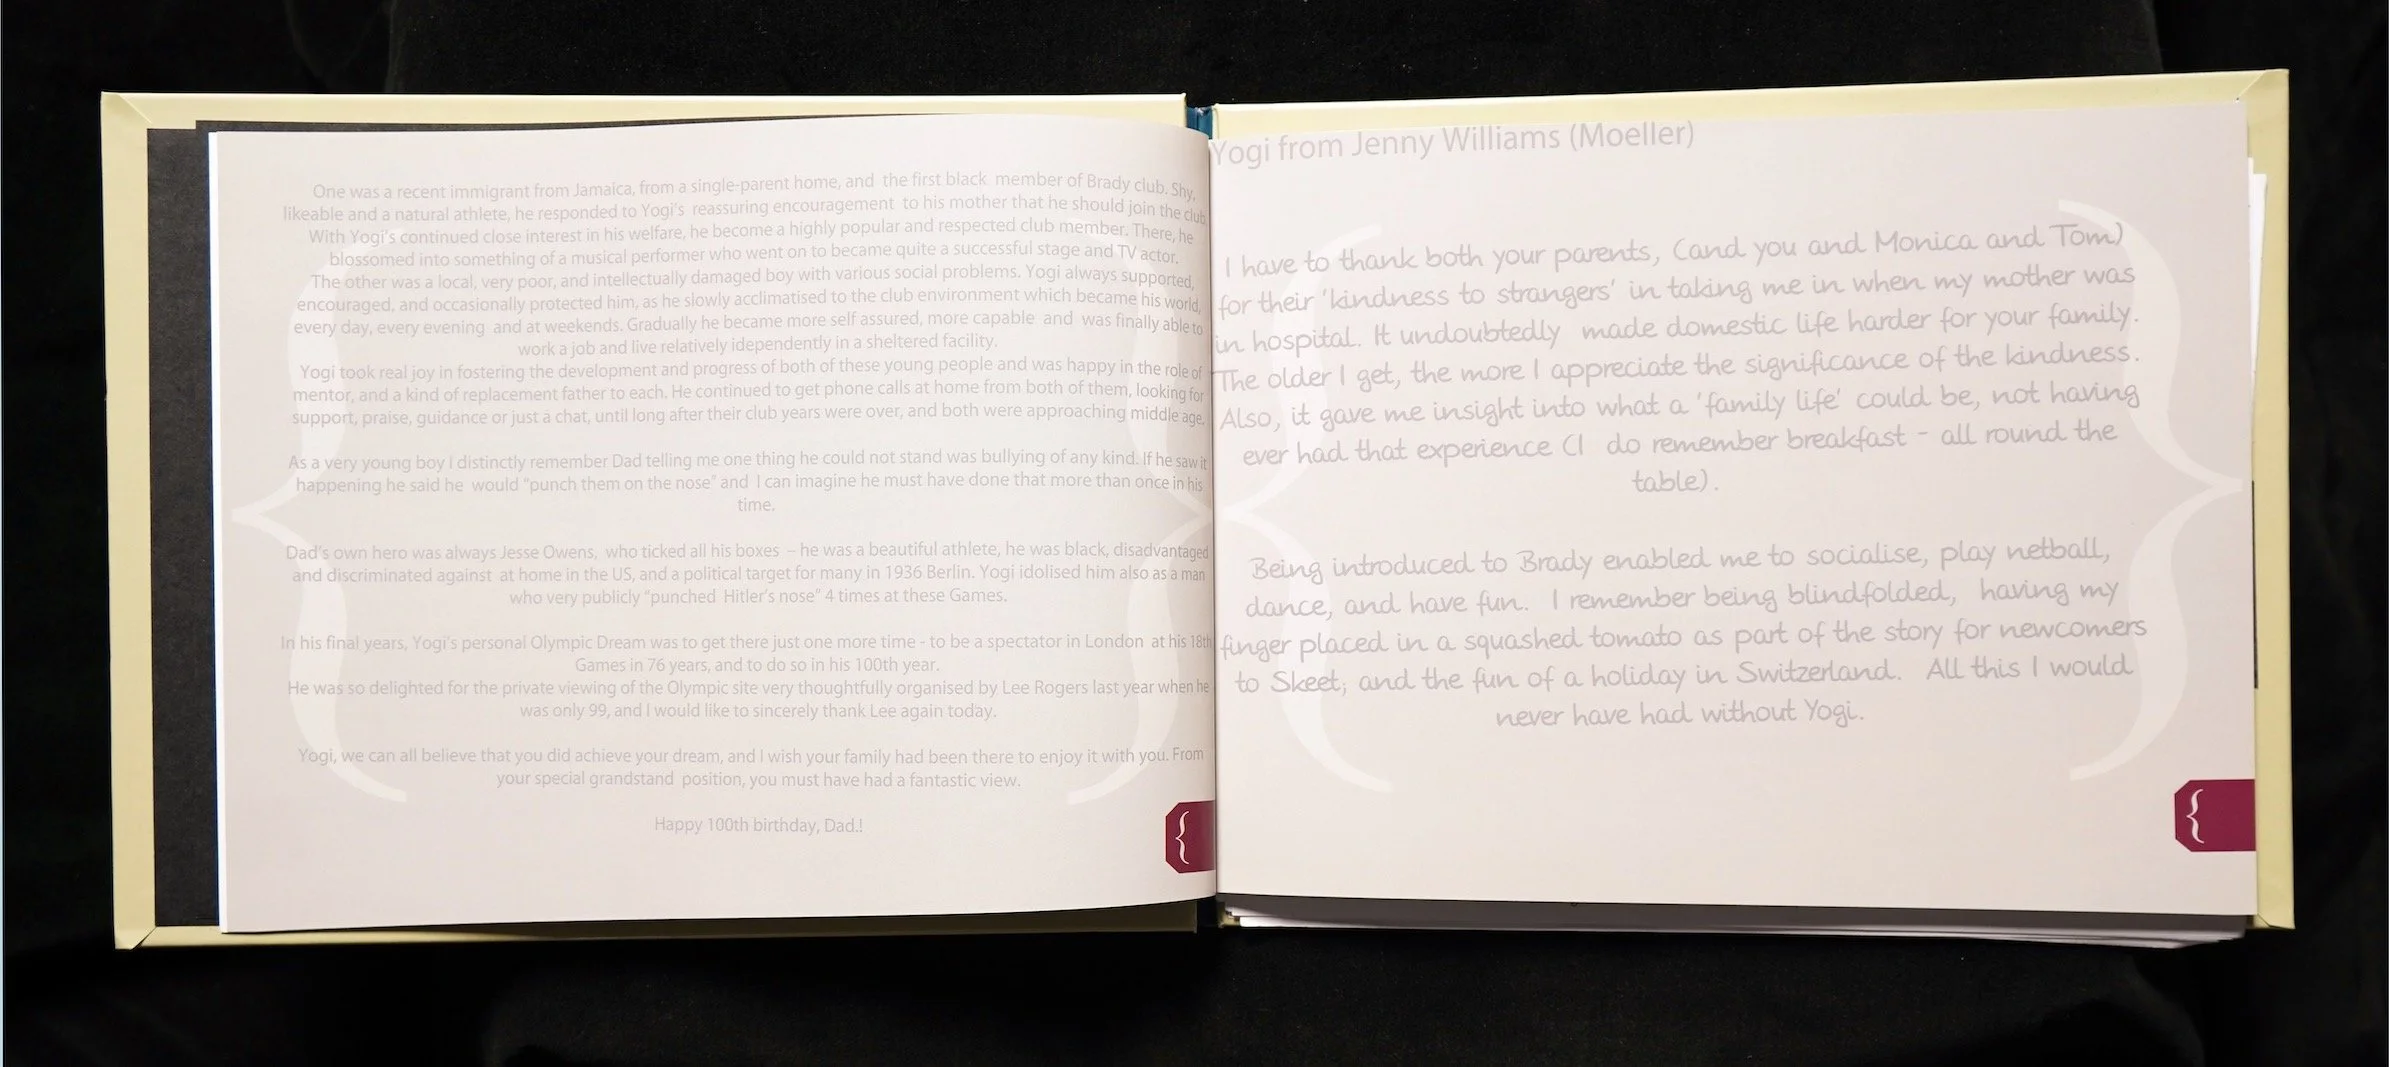 One was a recent immigrant from Jamaica, from a single-parent home, and the first black member of Brady club. Shy,
likeable and a natural athlete, he responded to Yogi's reassuring encouragement to his mother that he should join the club
With Yogi's continued close interest in his welfare, he become a highly popular and respected club member. There, he
blossomed into something of a musical performer who went on to became quite a successful stage and TV actor.
The other was a local, very poor, and intellectually damaged boy with various social problems. Yogi always supported,
encouraged, and occasionally protected him, as he slowly acclimatised to the club environment which became his world,
every day, every evening and at weekends. Gradually he became more self assured, more capable and was finally able to
work a job and live relatively idependently in a sheltered facility.
Yogi took real joy in fostering the development and progress of both of these young people and was happy in the role of
mentor, and a kind of replacement father to each. He continued to get phone calls at home from both of them, looking for
support, praise, guidance or just a chat, until long after their club years were over, and both were approaching middle age.
As a very young boy I distinctly remember Dad telling me one thing he could not stand was bullying of any kind. If he saw it
happening he said he would "punch them on the nose" and I can imagine he must have done that more than once in his
time.
Dad's own hero was always Jesse Owens, who ticked all his boxes – he was a beautiful athlete, he was black, disadvantaged
and discriminated against at home in the US, and a political target for many in 1936 Berlin. Yogi idolised him also as a man
who very publicly "punched Hitler's nose" 4 times at these Games.
In his final years, Yogi's personal Olympic Dream was to get there just one more time - to be a spectator in London at his 18th
Games in 76 years, and to do so in his 100th year.
He was so delighted for the private viewing of the Olympic site very thoughtfully organised by Lee Rogers last year when he
was only 99, and I would like to sincerely thank Lee again today.
Yogi, we can all believe that you did achieve your dream, and I wish your family had been there to enjoy it with you. From
your special grandstand position, you must have had a fantastic view.
Happy 100th birthday, Dad.!
Yogi from Jenny Williams (Moeller)
I have to thank both your parents, (and you and Monica and Tom)
for their 'kindness to strangers' in taking me in when my mother was
in hospital. It undoubtedly made domestic life harder for your family.
The older I get, the more I appreciate the significance of the kindness.
Also, it gave me insight into what a 'family life' could be, not having
ever had that experience (I do remember breakfast - all round the
table).
Being introduced to Brady enabled me to socialise, play netball,
dance, and have fun. I remember being blindfolded, having my
finger placed in a squashed tomato as part of the story for newcomers
to Skeet, and the fun of a holiday in Switzerland. All this I would
never have had without Yogi.